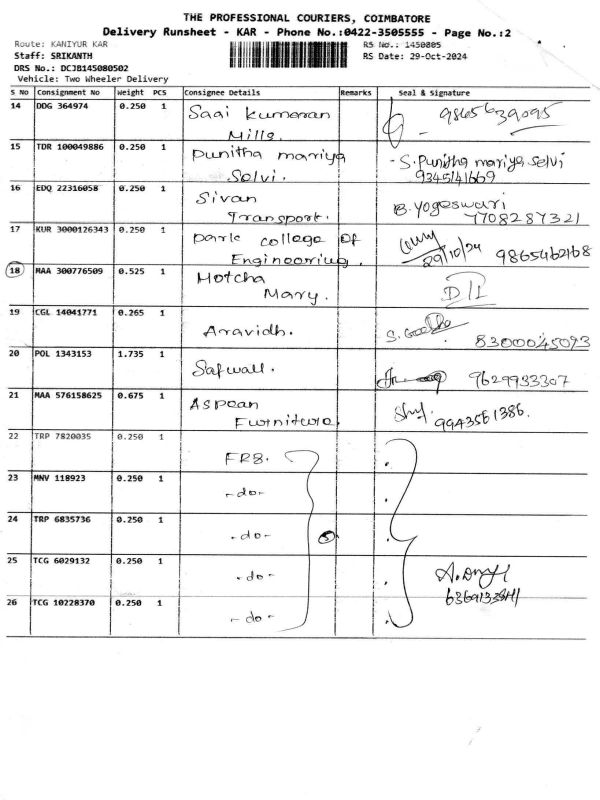 THE PROFESSIONAL COURIERS, COIMBATORE
Delivery Runsheet - KAR - Phone No.:0422-3505555 - Page No.:2
Route: KANIYUR KAR RS No.: 1450805
Staff: SRIKANTH RS Date: 29-Oct-2024
DRS No.: DCJB145080502
Vehicle: Two Wheeler Delivery
S No Consignment No Weight PCS Consignee Details Remarks Seal & Signature
14 DDG 364974 0.250 1 Saai Kumaran 9865639095
Mills.
15 TDR 100049886 0.250 1 Punitha mariya - S. Punitha mariya selvi
Selvi. 9345141669
16 EDQ 22316058 0.250 1 Sivan B. Yogeswari
Transport. 7708287321
17 KUR 3000126343 0.250 1 Park college of
Engineering. 29/10/24 9865462168
18 MAA 300776509 0.525 1 Hotcha
Mary. D/I
19 CGL 14041771 0.265 1 Aravidh. 8300045093
20 POL 1343153 1.735 1 Safwall. 9629933307
21 MAA 576158625 0.675 1 Aspean
Furniture. 9943561386.
22 TRP 7820035 0.250 1 FRB.
23 MNV 118923 0.250 1 -do-
24 TRP 6835736 0.250 1 -do- 5
25 TCG 6029132 0.250 1 -do-
26 TCG 10228370 0.250 1 -do-